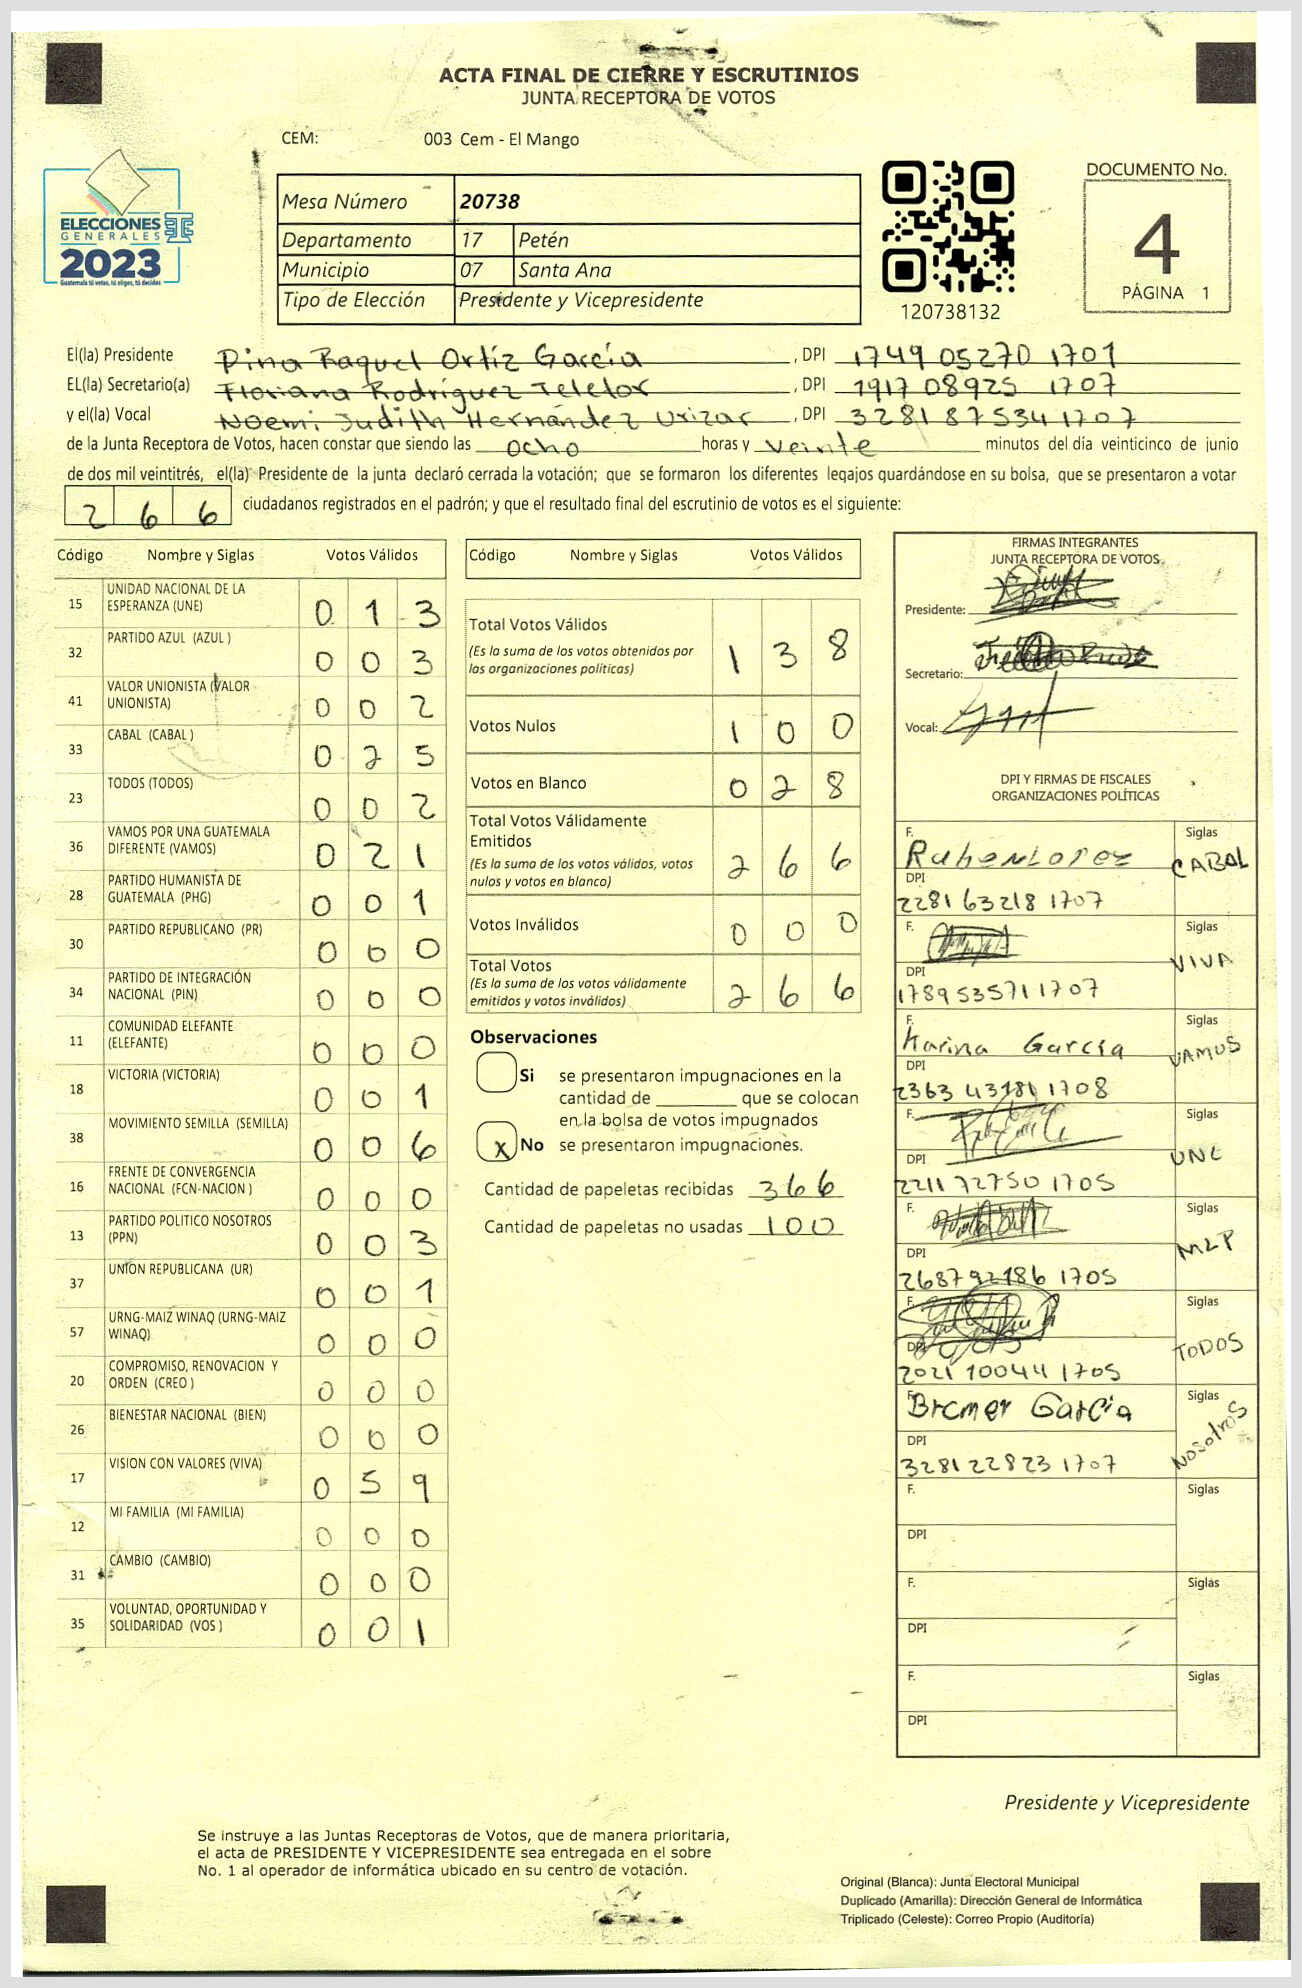 ACTA FINAL DE CIERRE Y ESCRUTINIOS
JUNTA RECEPTORA DE VOTOS
CEM: 003 Cem - El Mango
ELECCIONES
GENERALES
2023
Guatemala tú votas, tú eliges, tú decides
Mesa Número 20738
Departamento 17 Petén
Municipio 07 Santa Ana
Tipo de Elección Presidente y Vicepresidente
120738132
DOCUMENTO No.
4
PÁGINA 1
El(la) Presidente Dina Raquel Ortíz García, DPI 1749 05270 1701
EL(la) Secretario(a) Floriana Rodríguez Teletor, DPI 1917 08925 1707
y el(la) Vocal Noemi Judith Hernández Urizar, DPI 3281 87534 1707
de la Junta Receptora de Votos, hacen constar que siendo las ocho horas y veinte minutos del día veinticinco de junio
de dos mil veintitrés, el(la) Presidente de la junta declaró cerrada la votación; que se formaron los diferentes legajos guardándose en su bolsa, que se presentaron a votar
266 ciudadanos registrados en el padrón; y que el resultado final del escrutinio de votos es el siguiente:
Código Nombre y Siglas Votos Válidos
15 UNIDAD NACIONAL DE LA ESPERANZA (UNE) 013
32 PARTIDO AZUL (AZUL ) 003
41 VALOR UNIONISTA (VALOR UNIONISTA) 002
33 CABAL (CABAL ) 025
23 TODOS (TODOS) 002
36 VAMOS POR UNA GUATEMALA DIFERENTE (VAMOS) 021
28 PARTIDO HUMANISTA DE GUATEMALA (PHG) 001
30 PARTIDO REPUBLICANO (PR) 000
34 PARTIDO DE INTEGRACIÓN NACIONAL (PIN) 000
11 COMUNIDAD ELEFANTE (ELEFANTE) 000
18 VICTORIA (VICTORIA) 001
38 MOVIMIENTO SEMILLA (SEMILLA) 006
16 FRENTE DE CONVERGENCIA NACIONAL (FCN-NACION ) 000
13 PARTIDO POLITICO NOSOTROS (PPN) 003
37 UNION REPUBLICANA (UR) 001
57 URNG-MAIZ WINAQ (URNG-MAIZ WINAQ) 000
20 COMPROMISO, RENOVACION Y ORDEN (CREO ) 000
26 BIENESTAR NACIONAL (BIEN) 000
17 VISION CON VALORES (VIVA) 059
12 MI FAMILIA (MI FAMILIA) 000
31 CAMBIO (CAMBIO) 000
35 VOLUNTAD, OPORTUNIDAD Y SOLIDARIDAD (VOS ) 001
Código Nombre y Siglas Votos Válidos
Total Votos Válidos 138
(Es la suma de los votos obtenidos por
las organizaciones políticas)
Votos Nulos 100
Votos en Blanco 028
Total Votos Válidamente
Emitidos 266
(Es la suma de los votos válidos, votos
nulos y votos en blanco)
Votos Inválidos 000
Total Votos 266
(Es la suma de los votos válidamente
emitidos y votos inválidos)
Observaciones
Si se presentaron impugnaciones en la
cantidad de ________ que se colocan
en la bolsa de votos impugnados
X No se presentaron impugnaciones.
Cantidad de papeletas recibidas 366
Cantidad de papeletas no usadas 100
FIRMAS INTEGRANTES
JUNTA RECEPTORA DE VOTOS
Presidente:
Secretario:
Vocal:
DPI Y FIRMAS DE FISCALES
ORGANIZACIONES POLÍTICAS
F. Ruben Lopez Siglas CABAL
DPI 2281 63218 1707
F. Siglas VIVA
DPI 1789 53571 1707
F. Karina García Siglas VAMOS
DPI 2363 43181 1708
F. Siglas UNE
DPI 2211 72750 1705
F. Siglas MLP
DPI 2687 92186 1705
F. Siglas TODOS
DPI 2021 10044 1705
F. Bremer García Siglas Nosotros
DPI 3281 22823 1707
F. Siglas
DPI
F. Siglas
DPI
F. Siglas
DPI
Presidente y Vicepresidente
Se instruye a las Juntas Receptoras de Votos, que de manera prioritaria,
el acta de PRESIDENTE Y VICEPRESIDENTE sea entregada en el sobre
No. 1 al operador de informática ubicado en su centro de votación.
Original (Blanca): Junta Electoral Municipal
Duplicado (Amarilla): Dirección General de Informática
Triplicado (Celeste): Correo Propio (Auditoría)